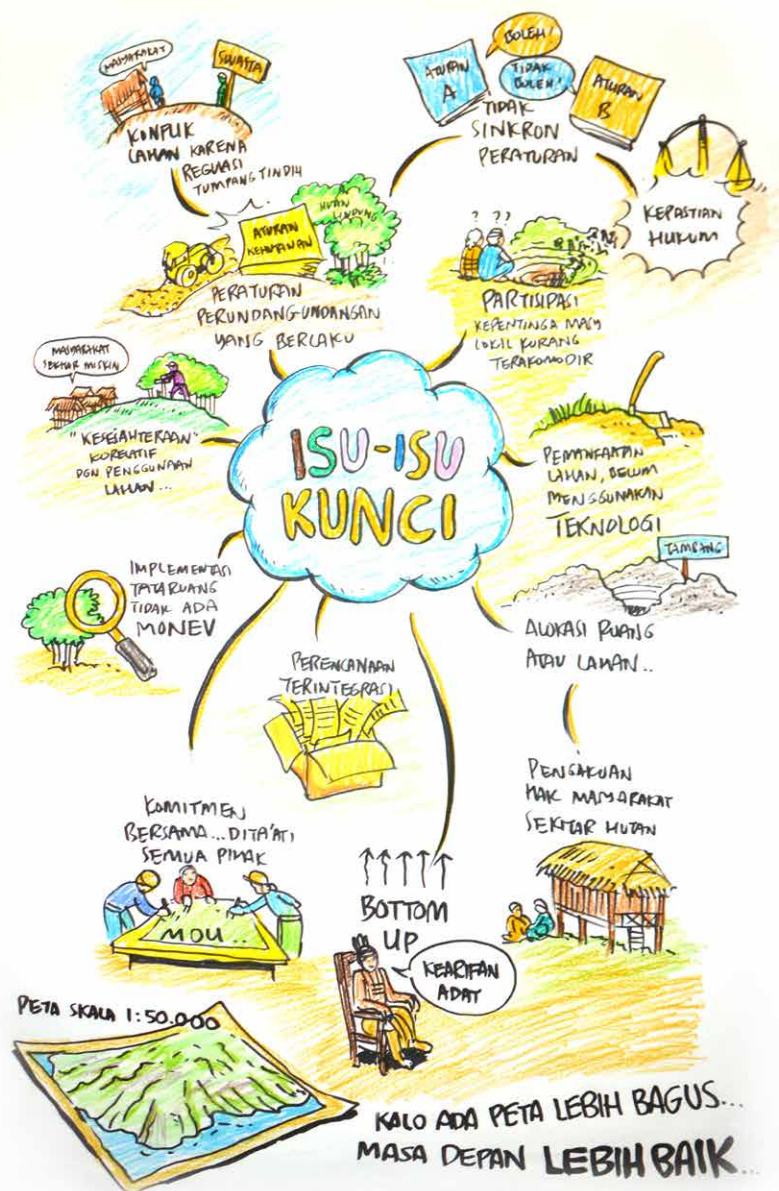 MASYARAKAT
SWASTA
KONFLIK
LAHAN KARENA
REGULASI
TUMPANG TINDIH
ATURAN
A
BOLEH!
TIDAK
BOLEH!
ATURAN
B
TIDAK
SINKRON
PERATURAN
KEPASTIAN
HUKUM
ATURAN
KEHUTANAN
HUTAN
LINDUNG
PERATURAN
PERUNDANG-UNDANGAN
YANG BERLAKU
? ? ?
PARTISIPASI
KEPENTINGA MASY
LOKAL KURANG
TERAKOMODIR
MASYARAKAT
SEKITAR MISKIN
"KESEJAHTERAAN"
KORELATIF
DGN PENGGUNAAN
LAHAN...
ISU-ISU
KUNCI
PEMANFAATAN
LAHAN, BELUM
MENGGUNAKAN
TEKNOLOGI
IMPLEMENTASI
TATA RUANG
TIDAK ADA
MONEV
TAMBANG
ALOKASI RUANG
ATAU LAHAN..
PERENCANAAN
TERINTEGRASI
PENGAKUAN
HAK MASYARAKAT
SEKITAR HUTAN
KOMITMEN
BERSAMA... DITA'ATI
SEMUA PIHAK
MOU..
BOTTOM
UP
KEARIFAN
ADAT
PETA SKALA 1:50.000
KALO ADA PETA LEBIH BAGUS...
MASA DEPAN LEBIH BAIK...